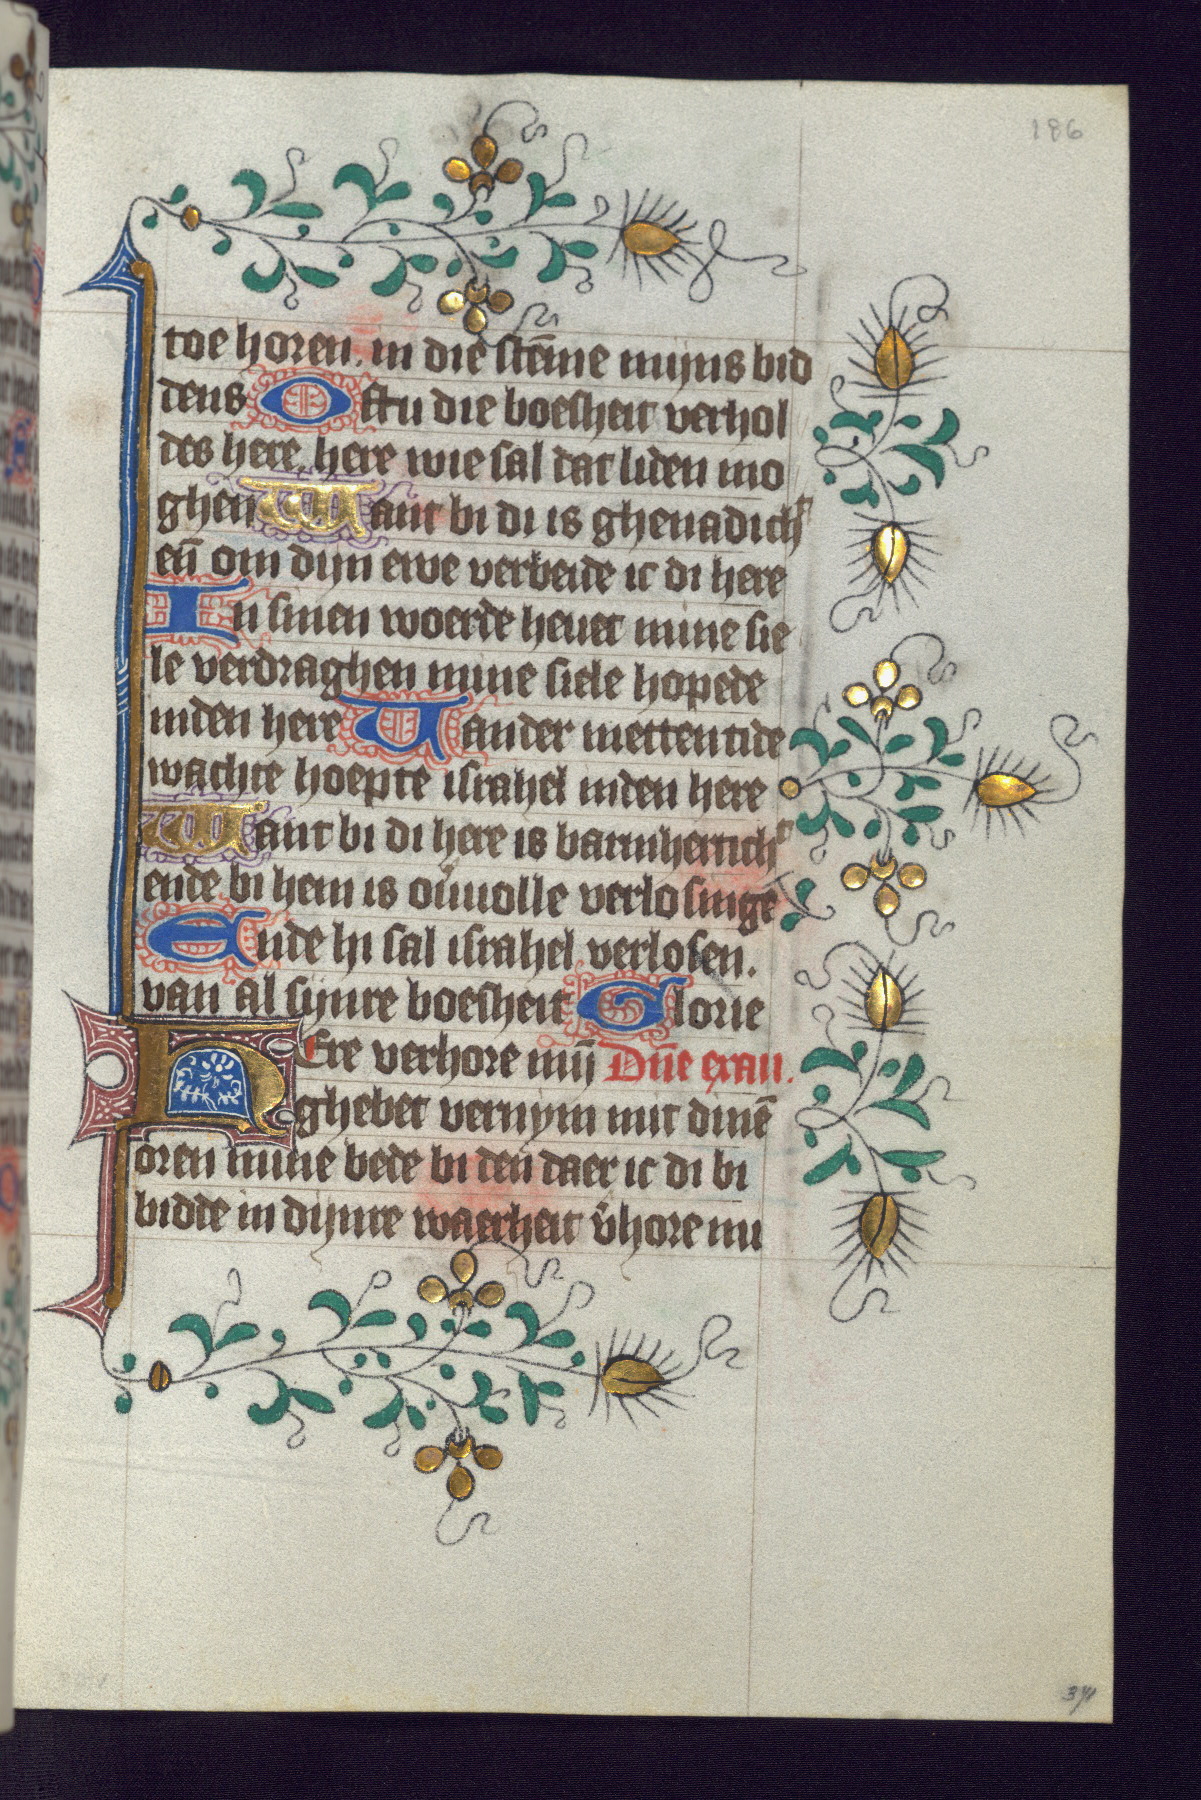 186
toe horen. in die stēme mijns bid
dens Ostu die boesheit verhol
des here, here wie sal dat liden mo
ghen Want bi di is ghenadich
eñ om dijn ewe verbeide ic di here
In sinen woerde heuet mine sie
le verdraghen mine siele hopede
inden here Uander mettentide
wachte hoepte israhel inden here
Want bi di here is barmhertich
ende bi hem is ouuolle verlosinge
Ende hi sal israhel verlosen.
van al sijnre boesheit Glorie
HEre verhore mij Dñe exau.
ghebet vernym mit dinē
oren mine bede bi den daer ic di bi
bidde in dijnre waerheit v̄hore mi
371